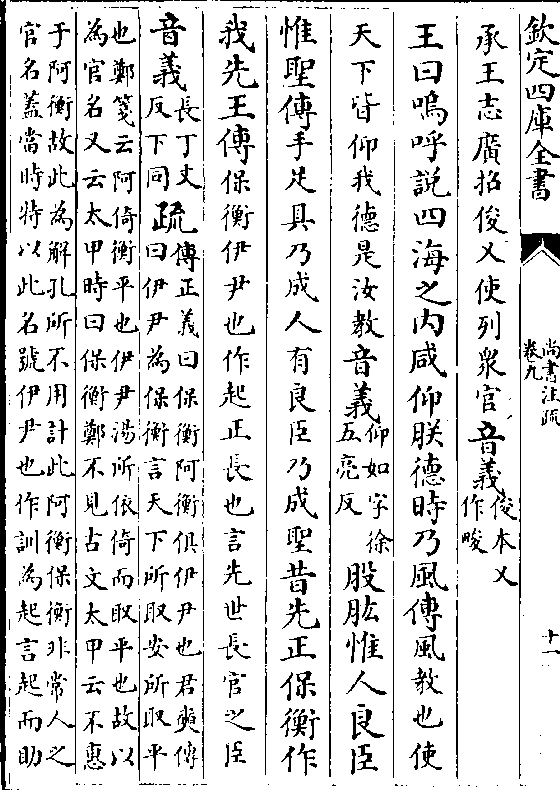 欽定四庫全書
尚書注疏
卷九
十一
承王志廣招俊乂使列衆官音義俊本又
作畯
王曰嗚呼説四海之内咸仰朕德時乃風傳風教也使
天下皆仰我德是汝教音義仰如字徐
五亮反
股肱惟人良臣
惟聖傳手足具乃成人有良臣乃成聖昔先正保衡作
我先王傳保衡伊尹也作起正長也言先世長官之臣
音義長丁丈
反下同
疏傳正義曰保衡阿衡俱伊尹也君奭傳
曰伊尹為保衡言天下所取安所取平
也鄭箋云阿倚衡平也伊尹湯所依倚而取平也故以
為官名又云太甲時曰保衡鄭不見古文太甲云不惠
于阿衡故此為解孔所不用計此阿衡保衡非常人之
官名蓋當時特以此名號伊尹也作訓為起言起而助